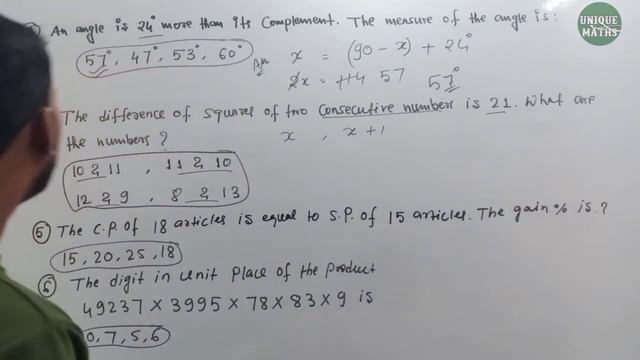 An angle is 24° more than its Complement. The measure of the angle is:
57°, 47°, 53°, 60°
Ans x = (90 - x) + 24°
2x = 114 57 57°
The difference of squares of two Consecutive numbers is 21. What are
the numbers?
x, x+1
10 & 11, 11 & 10
12 & 9, 8 & 13
5 The C.P. of 18 articles is equal to S.P. of 15 articles. The gain % is.?
15, 20, 25, 18
6 The digit in unit place of the product
49237 × 3995 × 78 × 83 × 9 is
0, 7, 5, 6
UNIQUE
MATHS